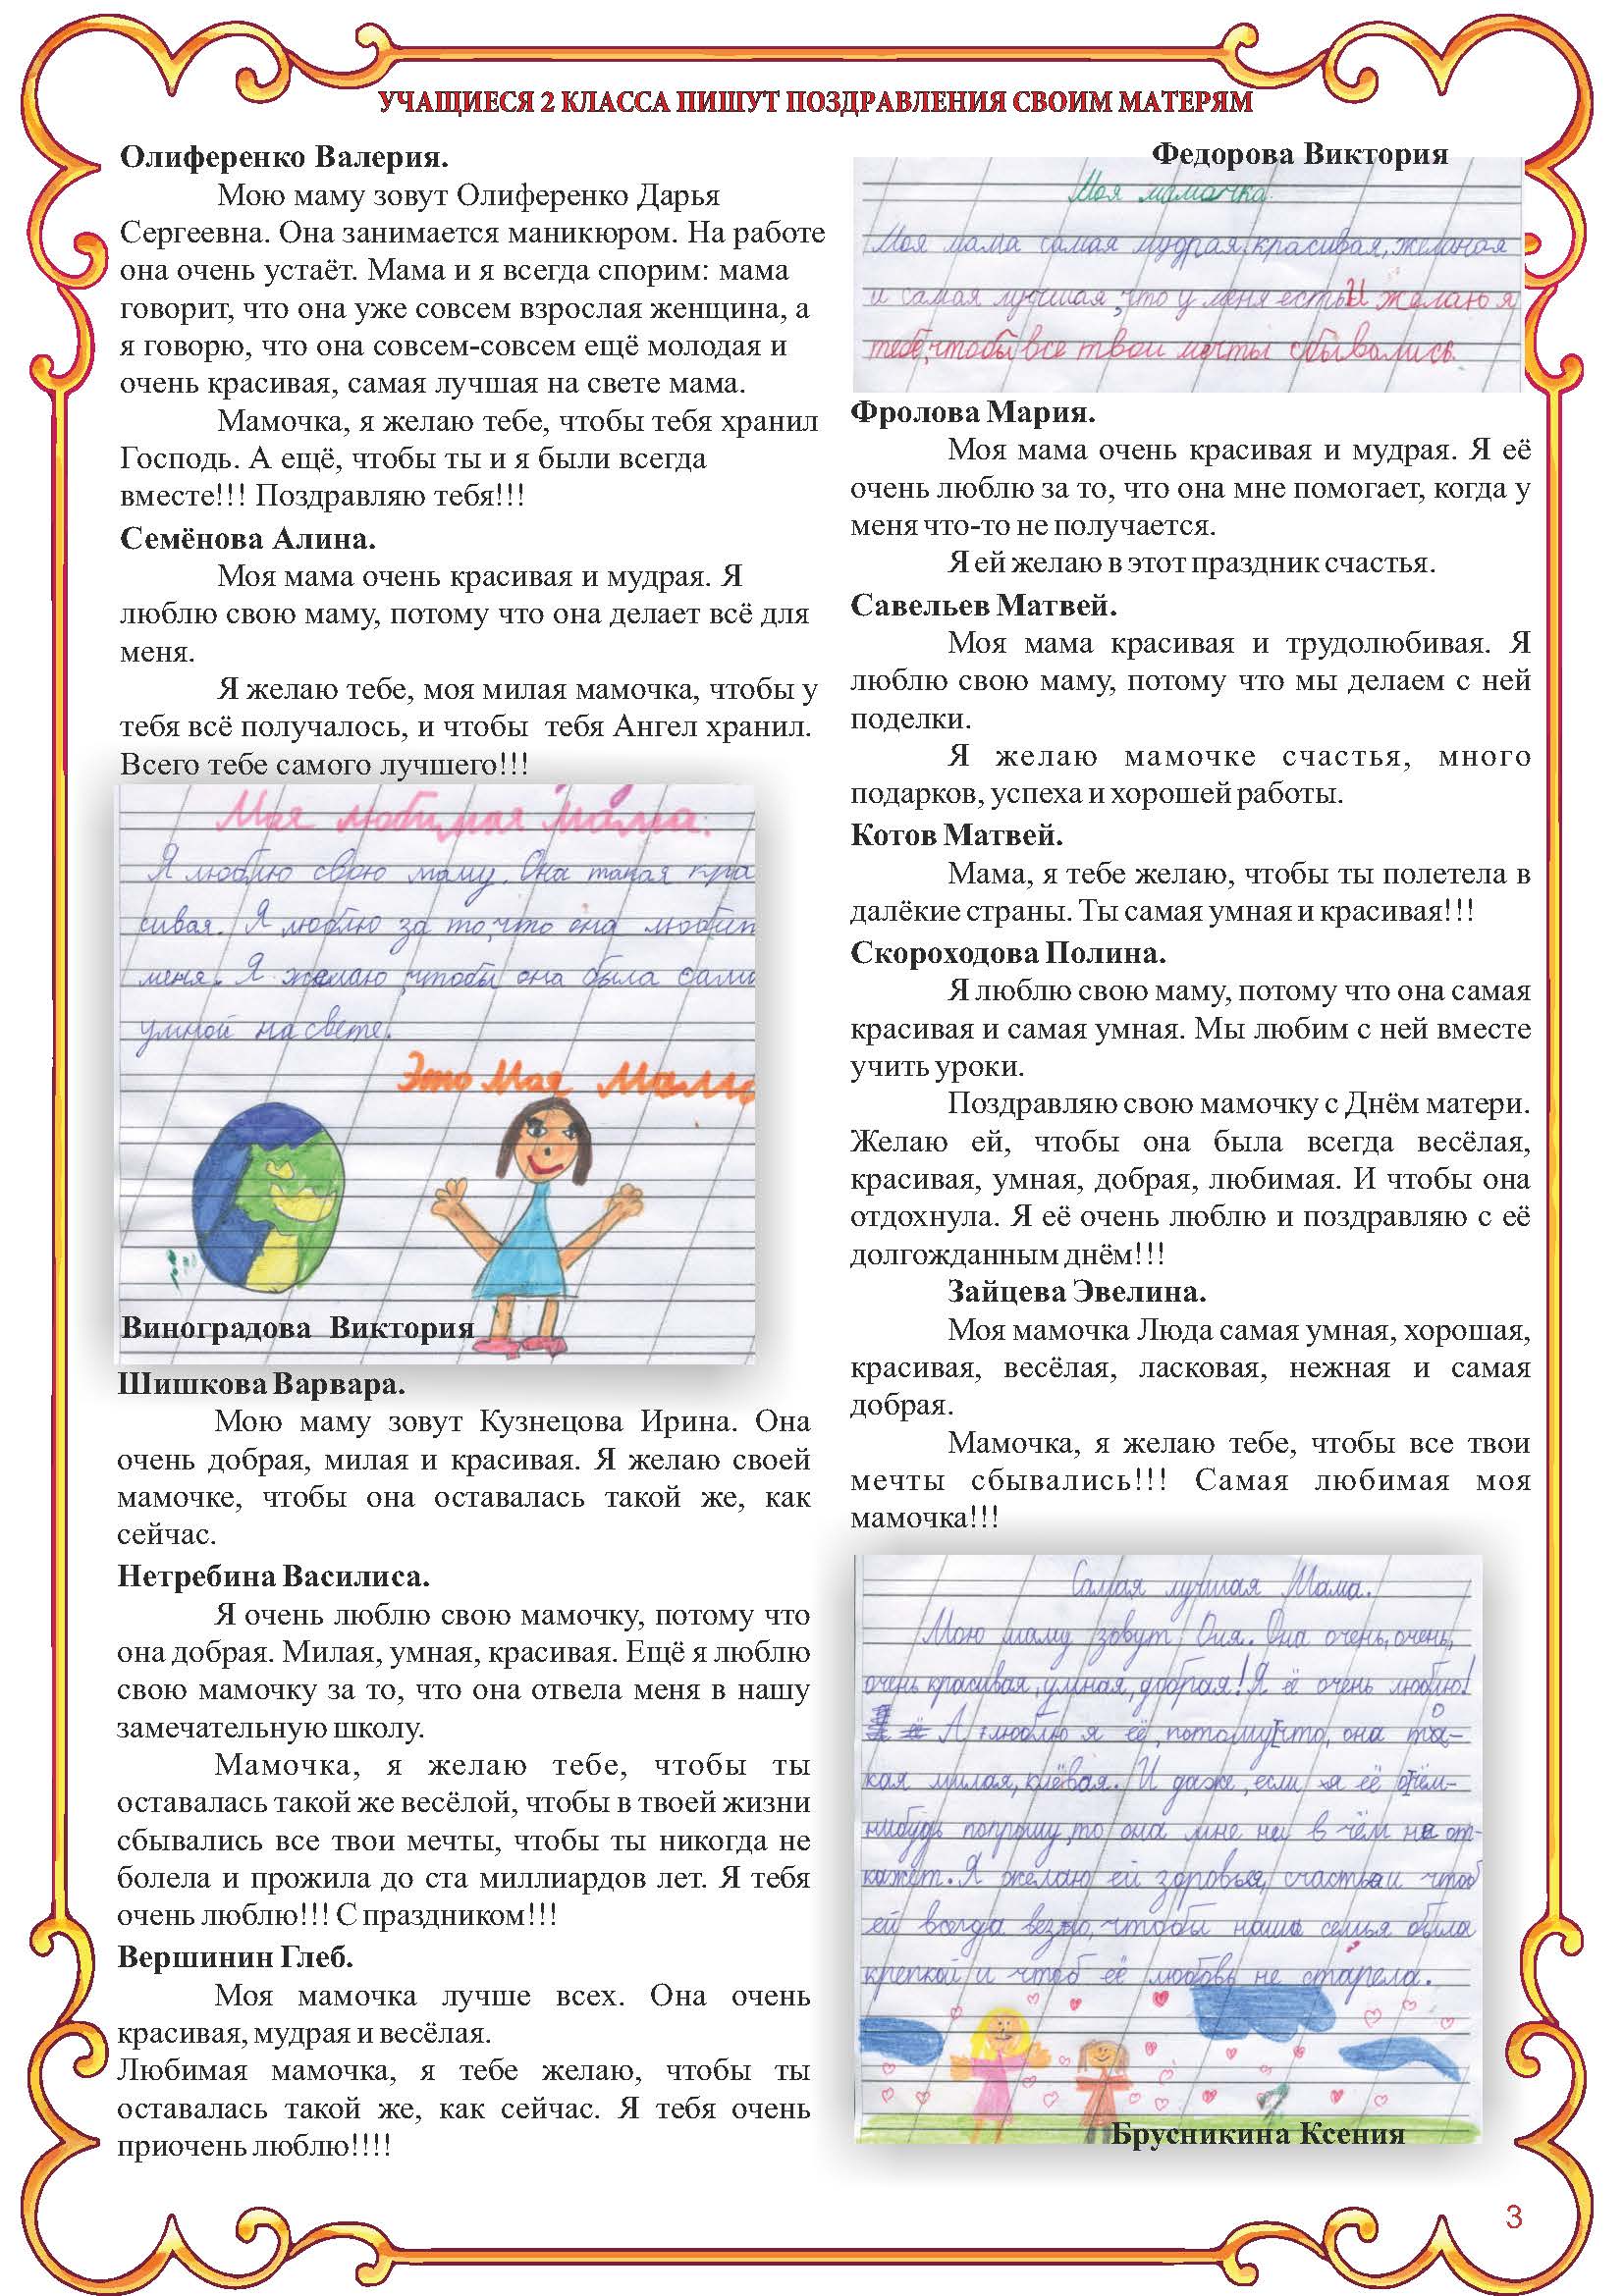 УЧАЩИЕСЯ 2 КЛАССА ПИШУТ ПОЗДРАВЛЕНИЯ СВОИМ МАТЕРЯМ
Олиференко Валерия.
Мою маму зовут Олиференко Дарья
Сергеевна. Она занимается маникюром. На работе
она очень устаёт. Мама и я всегда спорим: мама
говорит, что она уже совсем взрослая женщина, а
я говорю, что она совсем-совсем ещё молодая и
очень красивая, самая лучшая на свете мама.
Мамочка, я желаю тебе, чтобы тебя хранил
Господь. А ещё, чтобы ты и я были всегда
вместе!!! Поздравляю тебя!!!
Семёнова Алина.
Моя мама очень красивая и мудрая. Я
люблю свою маму, потому что она делает всё для
меня.
Я желаю тебе, моя милая мамочка, чтобы у
тебя всё получалось, и чтобы тебя Ангел хранил.
Всего тебе самого лучшего!!!
Моя любимая мама.
Я люблю свою маму. Она такая кра
сивая. Я люблю за то, что она любит
меня. Я желаю, чтобы она была само
умной на свете.
Это Моя Мама
Виноградова Виктория
Шишкова Варвара.
Мою маму зовут Кузнецова Ирина. Она
очень добрая, милая и красивая. Я желаю своей
мамочке, чтобы она оставалась такой же, как
сейчас.
Нетребина Василиса.
Я очень люблю свою мамочку, потому что
она добрая. Милая, умная, красивая. Ещё я люблю
свою мамочку за то, что она отвела меня в нашу
замечательную школу.
Мамочка, я желаю тебе, чтобы ты
оставалась такой же весёлой, чтобы в твоей жизни
сбывались все твои мечты, чтобы ты никогда не
болела и прожила до ста миллиардов лет. Я тебя
очень люблю!!! С праздником!!!
Вершинин Глеб.
Моя мамочка лучше всех. Она очень
красивая, мудрая и весёлая.
Любимая мамочка, я тебе желаю, чтобы ты
оставалась такой же, как сейчас. Я тебя очень
приочень люблю!!!!
Федорова Виктория
Моя мамочка.
Моя мама самая мудрая, красивая, желаная
и самая лучшая, что у меня есть. И желаю я
тебе, чтобы все твои мечты сбывались.
Фролова Мария.
Моя мама очень красивая и мудрая. Я её
очень люблю за то, что она мне помогает, когда у
меня что-то не получается.
Я ей желаю в этот праздник счастья.
Савельев Матвей.
Моя мама красивая и трудолюбивая. Я
люблю свою маму, потому что мы делаем с ней
поделки.
Я желаю мамочке счастья, много
подарков, успеха и хорошей работы.
Котов Матвей.
Мама, я тебе желаю, чтобы ты полетела в
далёкие страны. Ты самая умная и красивая!!!
Скороходова Полина.
Я люблю свою маму, потому что она самая
красивая и самая умная. Мы любим с ней вместе
учить уроки.
Поздравляю свою мамочку с Днём матери.
Желаю ей, чтобы она была всегда весёлая,
красивая, умная, добрая, любимая. И чтобы она
отдохнула. Я её очень люблю и поздравляю с её
долгожданным днём!!!
Зайцева Эвелина.
Моя мамочка Люда самая умная, хорошая,
красивая, весёлая, ласковая, нежная и самая
добрая.
Мамочка, я желаю тебе, чтобы все твои
мечты сбывались!!! Самая любимая моя
мамочка!!!
Самая лучшая Мама.
Мою маму зовут Оля. Она очень, очень,
очень красивая, умная, добрая! Я её очень люблю!
А люблю я её, потому что, она та-
кая милая, клёвая. И даже, если я её о чём-
нибудь попрошу, то она мне ни в чём не от-
кажет. Я желаю ей здоровья, счастья и чтоб
ей всегда везло, чтобы наша семья была
крепкой и чтоб её любовь не старела.
Брусникина Ксения
3